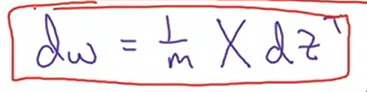 dw = 1/m X dz^T